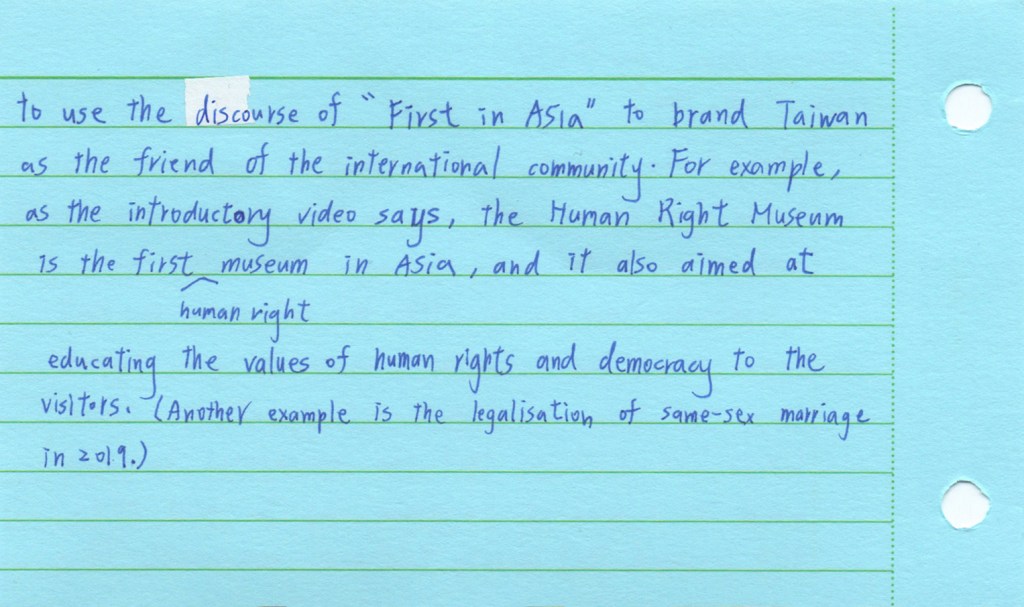 to use the discourse of "First in Asia" to brand Taiwan
as the friend of the international community. For example,
as the introductory video says, the Human Right Museum
is the first museum in Asia, and it also aimed at
human right
educating the values of human rights and democracy to the
visitors. (Another example is the legalisation of same-sex marriage
in 2019.)